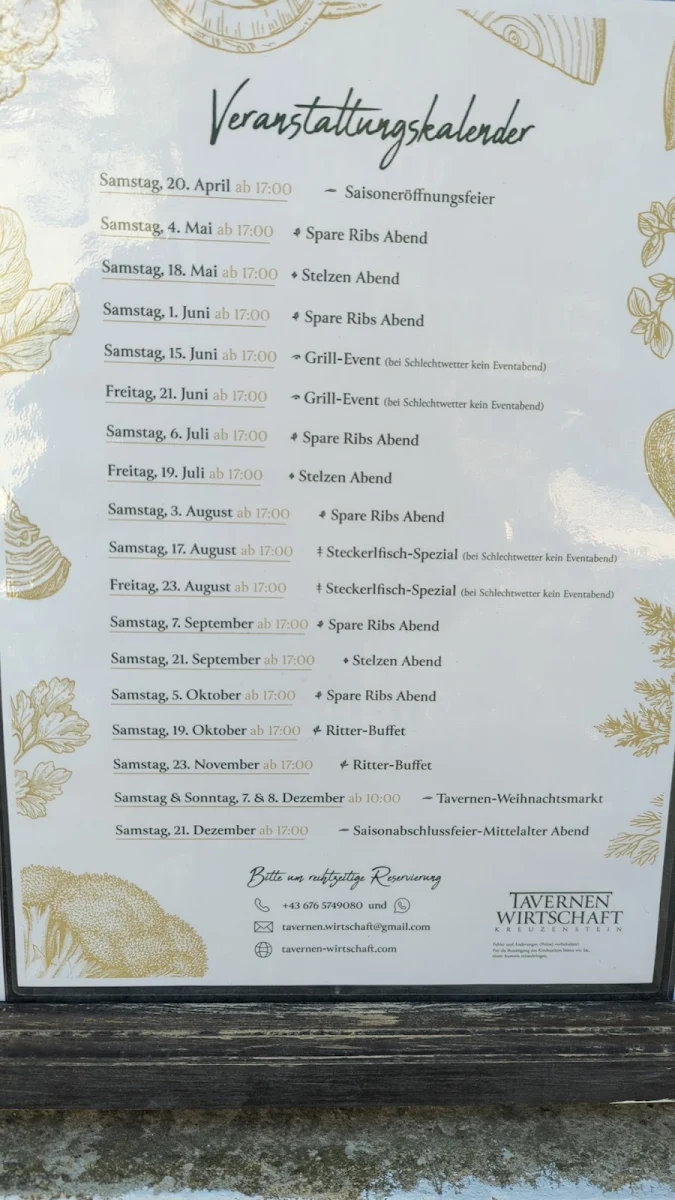 Veranstaltungskalender
Samstag, 20. April ab 17:00 – Saisoneröffnungsfeier
Samstag, 4. Mai ab 17:00 Spare Ribs Abend
Samstag, 18. Mai ab 17:00 Stelzen Abend
Samstag, 1. Juni ab 17:00 Spare Ribs Abend
Samstag, 15. Juni ab 17:00 Grill-Event (bei Schlechtwetter kein Eventabend)
Freitag, 21. Juni ab 17:00 Grill-Event (bei Schlechtwetter kein Eventabend)
Samstag, 6. Juli ab 17:00 Spare Ribs Abend
Freitag, 19. Juli ab 17:00 Stelzen Abend
Samstag, 3. August ab 17:00 Spare Ribs Abend
Samstag, 17. August ab 17:00 Steckerlfisch-Spezial (bei Schlechtwetter kein Eventabend)
Freitag, 23. August ab 17:00 Steckerlfisch-Spezial (bei Schlechtwetter kein Eventabend)
Samstag, 7. September ab 17:00 Spare Ribs Abend
Samstag, 21. September ab 17:00 Stelzen Abend
Samstag, 5. Oktober ab 17:00 Spare Ribs Abend
Samstag, 19. Oktober ab 17:00 Ritter-Buffet
Samstag, 23. November ab 17:00 Ritter-Buffet
Samstag & Sonntag, 7. & 8. Dezember ab 10:00 – Tavernen-Weihnachtsmarkt
Samstag, 21. Dezember ab 17:00 – Saisonabschlussfeier-Mittelalter Abend
Bitte um rechtzeitige Reservierung
+43 676 5749080 und
tavernen.wirtschaft@gmail.com
tavernen-wirtschaft.com
TAVERNEN
WIRTSCHAFT
KREUZENSTEIN